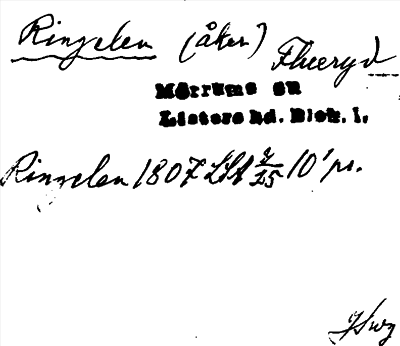 Ringelen (åker)
Elleryd
Mörrums sn
Listers hd. Blek. l.
Ringelen 1807 LSA 2/25 10' pr.